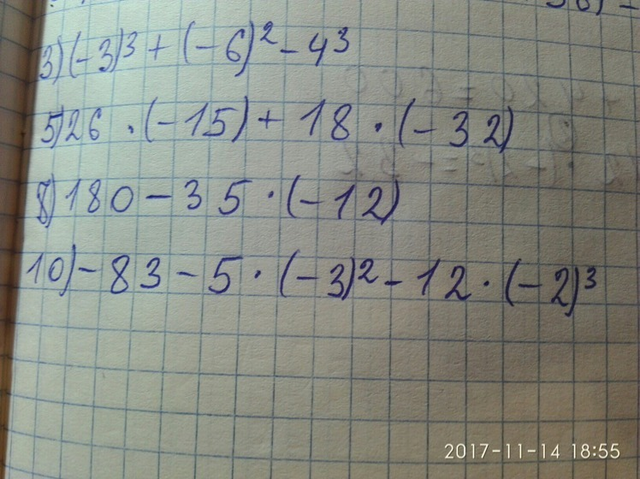 3) (-3)³ + (-6)² - 4³
5) 26 · (-15) + 18 · (-32)
8) 180 - 35 · (-12)
10) -83 - 5 · (-3)² - 12 · (-2)³
2017-11-14 18:55